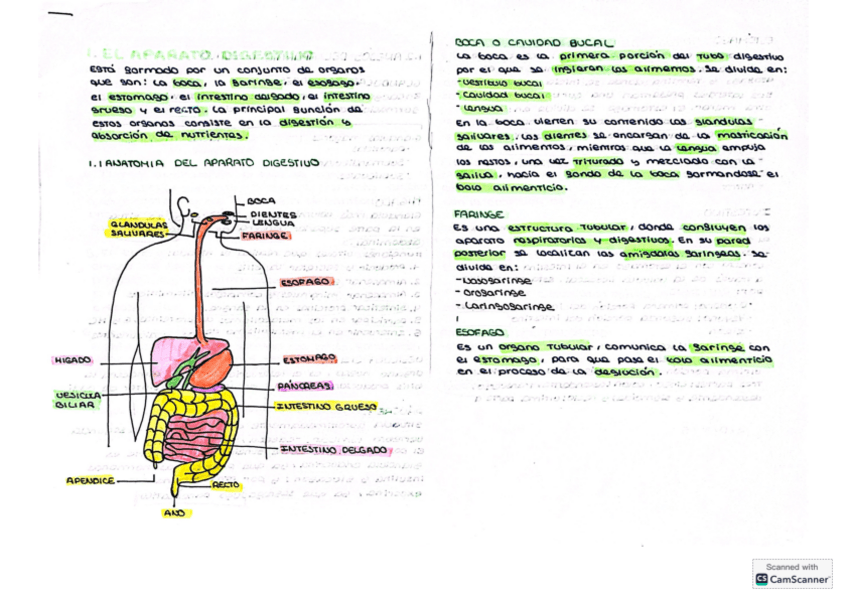 1. EL APARATO DIGESTIVO
Está formado por un conjunto de organos
que son: la boca, la faringe, el esofago,
el estomago, el intestino delgado, el intestino
grueso y el recto. La principal función de
estos organos consiste en la digestión y
absorción de nutrientes.
1.1 ANATOMIA DEL APARATO DIGESTIVO
BOCA
DIENTES
LENGUA
GLANDULAS
SALIVARES
FARINGE
ESOFAGO
HIGADO
ESTOMAGO
PANCREAS
VESICULA
BILIAR
INTESTINO GRUESO
INTESTINO DELGADO
APENDICE
RECTO
ANO
BOCA O CAVIDAD BUCAL
La boca es la primera porción del tubo digestivo
por el que se ingieran los alimentos. Se divide en:
- Vestibulo bucal
- Cavidad bucal
- Lengua
En la boca vierten su contenido las glandulas
salivares. Los dientes se encargan de la masticación
de los alimentos, mientras que la lengua empuja
los restos, una vez triturado y mezclado con la
saliva, hacia el fondo de la boca formandose el
bolo alimenticio.
FARINGE
Es una estructura tubular, donde confluyen los
aparato respiratorios y digestivos. En su pared
posterior se localizan las amigdalas faringeas. Se
divide en:
- Nasofaringe
- Orofaringe
- Laringofaringe
ESOFAGO
Es un organo tubular, comunica la faringe con
el estomago, para que pase el bolo alimenticio
en el proceso de la deglución.
Scanned with
CS CamScanner